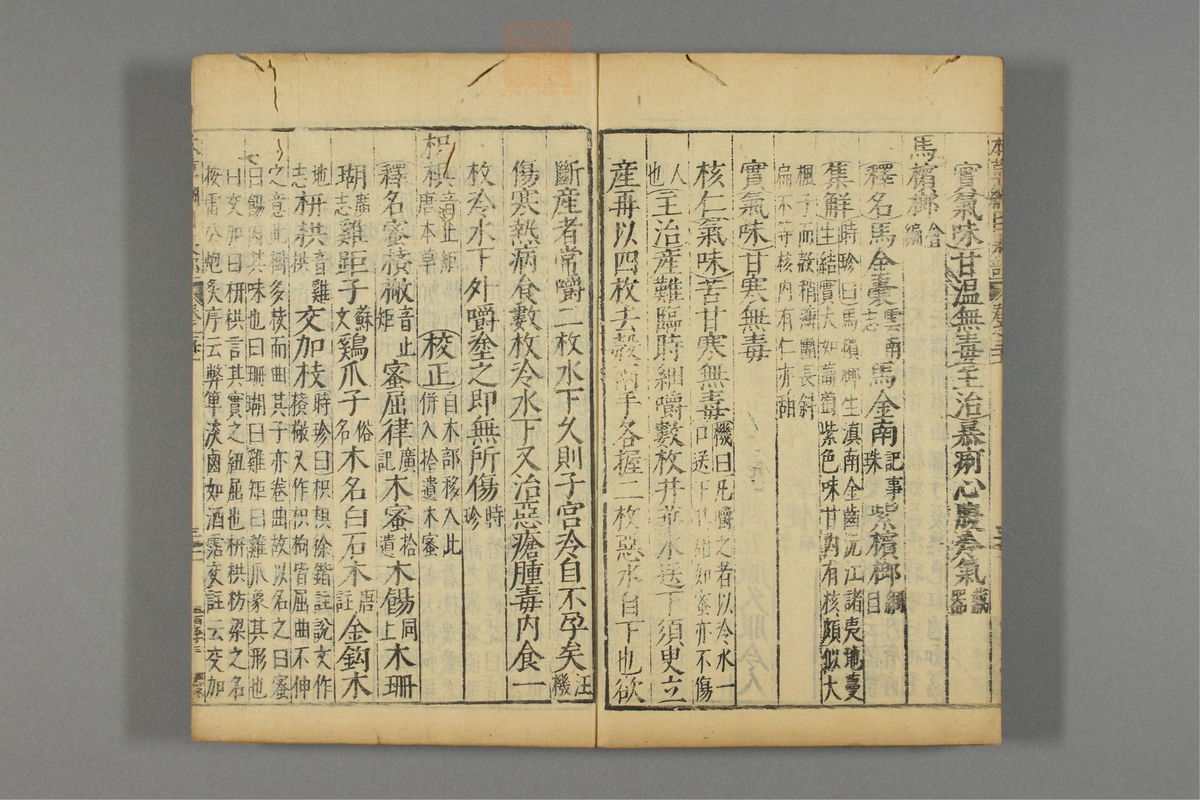 實氣味甘溫無毒主治暴痢心腹冷氣藏器
馬檳榔會編
釋名馬金囊雲南志馬金南記事珠紫檳榔綱目
集解時珍曰馬檳榔生滇南金齒沅江諸夷地蔓
生結實大如葡萄紫色味甘內有核頗似大
楓子而殼稍薄團長斜
扁不等核內有仁亦甜
實氣味甘寒無毒
核仁氣味苦甘寒無毒機曰凡嚼之者以冷水一
口送下其甜如蜜亦不傷
人也主治產難臨時細嚼數枚井華水送下須臾立
產再以四枚去殼兩手各握二枚惡水自下也欲
斷產者常嚼二枚水下久則子宮冷自不孕矣汪機
傷寒熱病食數枚冷水下又治惡瘡腫毒內食一
枚冷水下外嚼塗之即無所傷時珍
枳椇音止矩唐本草校正自木部移入此併入拾遺木蜜
釋名蜜㮕㰉音止矩蜜屈律廣記木蜜拾遺木餳同上木珊
瑚廣志雞距子蘇文雞爪子俗名木名白石木唐註金鈎木
地志枅栱音雞栱交加枝時珍曰枳椇徐鍇註說文作
㮕㰉又作枳枸皆屈曲不伸
之意此樹多枝而曲其子亦卷曲故以名之曰蜜
曰餳因其味也曰珊瑚曰雞矩曰雞爪象其形也
曰交加曰枅栱言其實之紐屈也枅栱枋梁之名
按雷公炮炙序云弊箄淡鹵如酒霑交註云交加